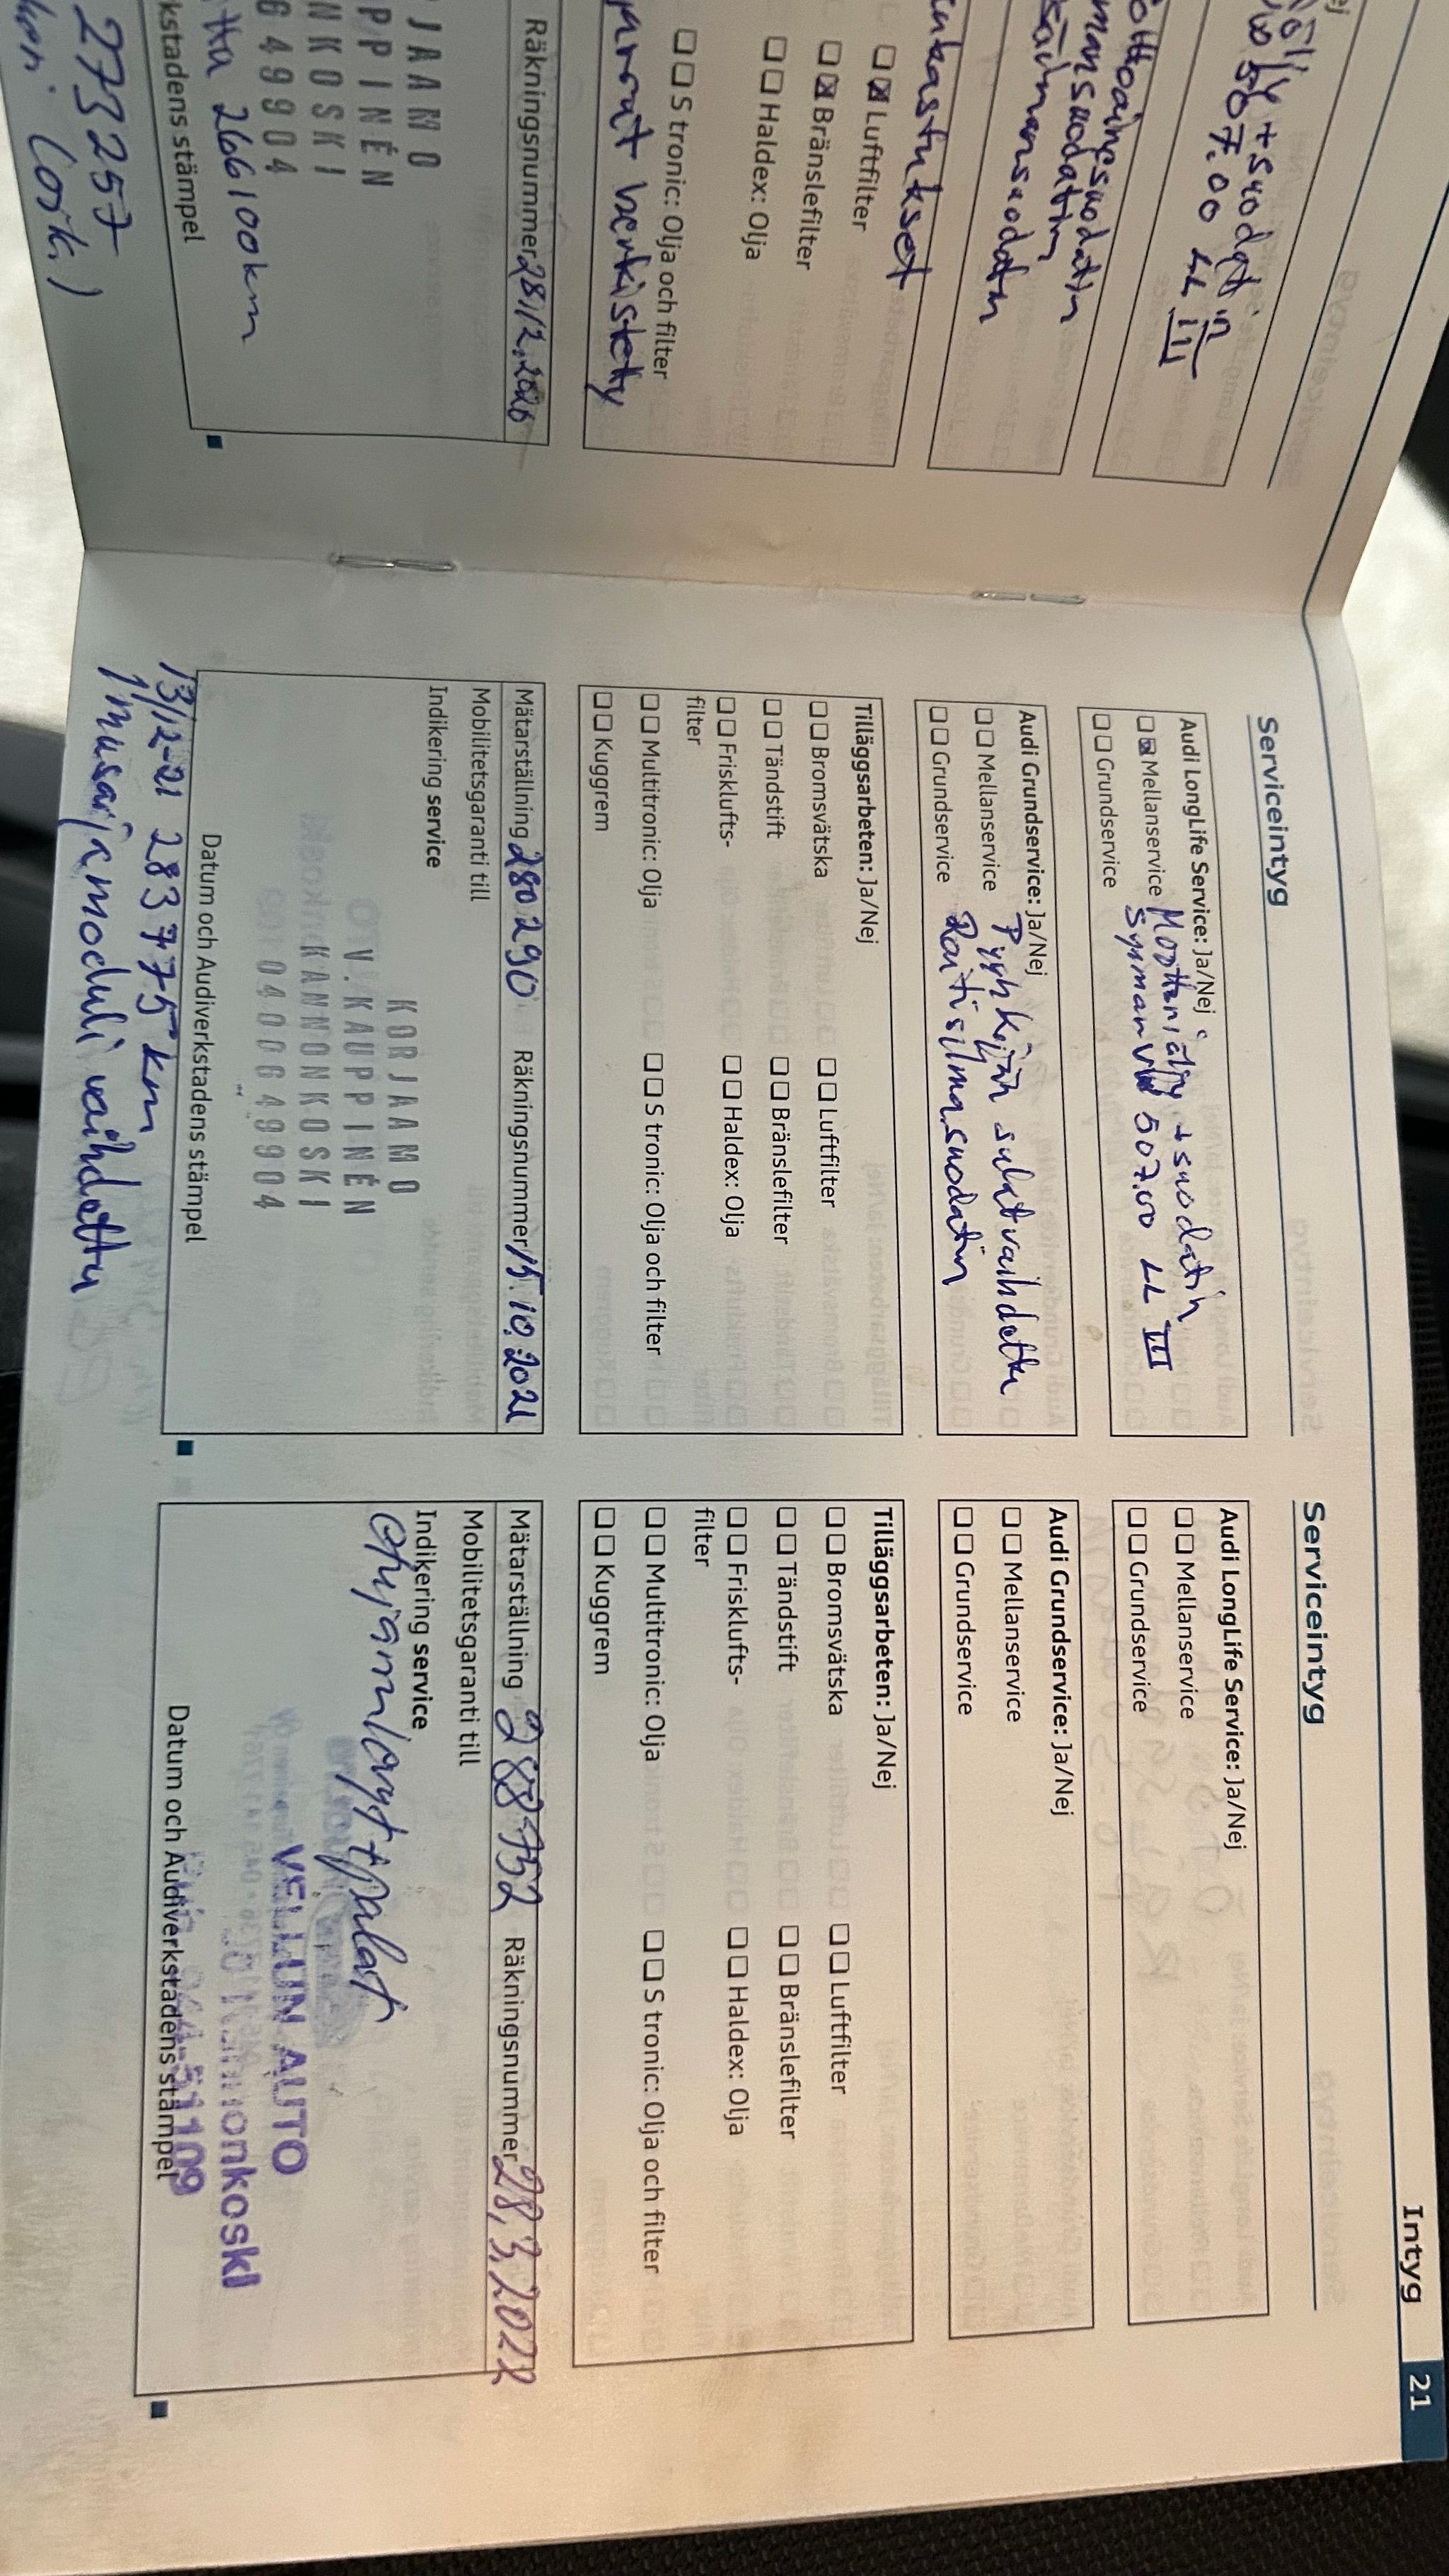 Intyg 21
ej
öljy + suodatin
507.00 LL III
polttoainesuodatin
suodatin
Luftfilter
Bränslefilter
Haldex: Olja
S tronic: Olja och filter
jarrut herkistetty
Räkningsnummer 28.12.2020
JAAMO
PPINEN
NKOSKI
G49904
266100km
kstadens stämpel
273257
Serviceintyg
Audi LongLife Service: Ja/Nej
Mellanservice Moottoriöljy + suodatin
Grundservice Synman VW 507.00 LL III
Audi Grundservice: Ja/Nej
Mellanservice Pyyhkijän sulat vaihdettu
Grundservice Raitisilmasuodatin
Tilläggsarbeten: Ja/Nej
Bromsvätska Luftfilter
Tändstift Bränslefilter
Frisklufts- Haldex: Olja
filter
Multitronic: Olja S tronic: Olja och filter
Kuggrem
Mätarställning 280290 Räkningsnummer 15.10.2021
Mobilitetsgaranti till
Indikering service
KORJAAMO
V. KAUPPINEN
KANNONKOSKI
0400649904
Datum och Audiverkstadens stämpel
13/12-21 283775 km
imusarjamoduli vaihdettu
Serviceintyg
Audi LongLife Service: Ja/Nej
Mellanservice
Grundservice
Audi Grundservice: Ja/Nej
Mellanservice
Grundservice
Tilläggsarbeten: Ja/Nej
Bromsvätska Luftfilter
Tändstift Bränslefilter
Frisklufts- Haldex: Olja
filter
Multitronic: Olja S tronic: Olja och filter
Kuggrem
Mätarställning 288752 Räkningsnummer 28.3.2022
Mobilitetsgaranti till
Indikering service
etujarrulevyt + palat
VELLUN AUTO
Kannonkoski
Datum och Audiverkstadens stämpel